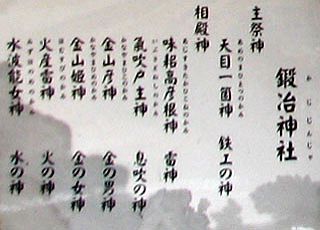 鍛冶神社
かじじんじゃ
主祭神
天目一箇神 鉄工の神
あめのまひとつのかみ
相殿神
味耜高彦根神 雷神
あじすきたかひこねのかみ
氣吹戸主神 息吹の神
いぶきどぬしのかみ
金山彦神 金の男神
かなやまひこのかみ
金山姫神 金の女神
かなやまひめのかみ
火産雷神 火の神
ほむすびのかみ
水波能女神 水の神
みずはのめのかみ